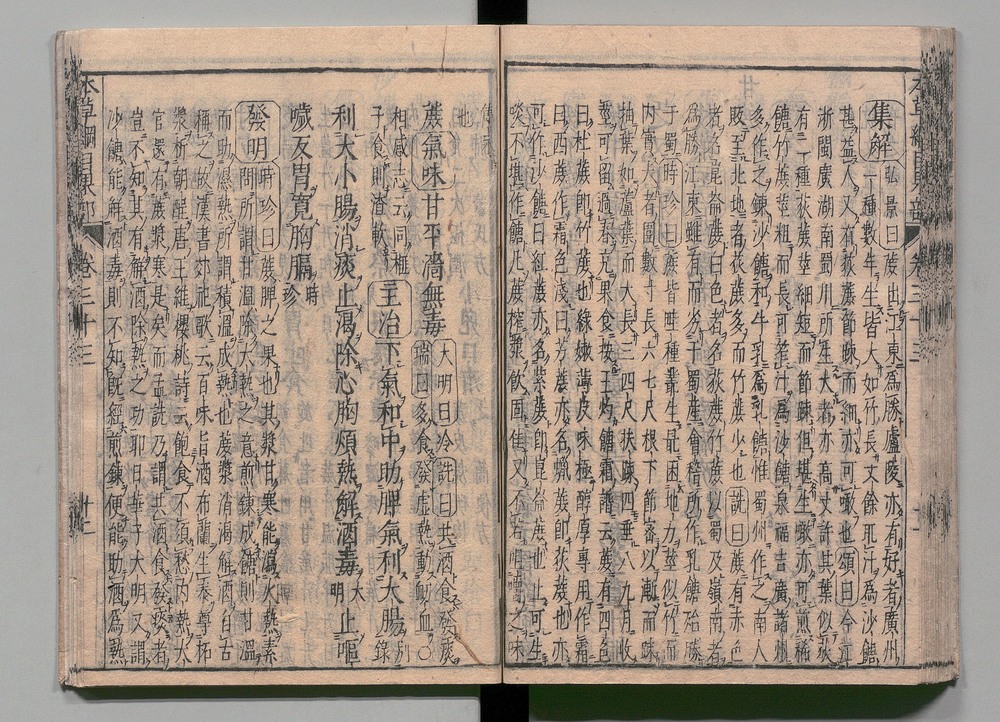 集解弘景曰蔗出江東爲勝廬陵亦有好者廣州
一種數年生皆大如竹長丈餘取汁爲沙餹
甚益人又有荻蔗節疎而細亦可噉也頌曰今江
浙閩廣湖南蜀川所生大者亦高丈許其葉似荻
有二種荻蔗莖細短而節疎但堪生噉亦可煎稀
餹竹蔗莖粗而長可笮汁爲沙餹泉福吉廣諸州
多作之錬沙餹和牛乳爲乳餹惟蜀州作之南人
販至北地者荻蔗多而竹蔗少也詵曰蔗有赤色
者名崑崙蔗白色者名荻蔗竹蔗以蜀及嶺南者
爲勝江東雖有而劣於蜀産會稽所作乳餹殆勝
于蜀時珍曰蔗皆畦種叢生最困地力莖似竹而
内實大者圍數寸長六七尺根下節密以漸而疎
抽葉如蘆葉而大長三四尺扶疎四垂八九月收
莖可留過春充果食按王灼餹霜譜云蔗有四色
曰杜蔗即竹蔗也緑嫩薄皮味極醇厚專用作霜
曰西蔗作霜色淺曰芳蔗亦名蠟蔗即荻蔗也亦
可作沙餹曰紅蔗亦名紫蔗即崑崙蔗也止可生
啖不堪作餹凡蔗榨漿飲固佳又不若咀嚼之味
雋永也
蔗氣味甘平濇無毒大明曰冷詵曰共酒食發痰
瑞曰多食發虛熱動衄血〇
相感志云同榧
子食則渣軟主治下氣和中助脾氣利大腸別錄
利大小腸消痰止渴除心胸煩熱解酒毒大明止嘔
噦反胃寬胸膈時珍
發明時珍曰蔗脾之果也其漿甘寒能瀉火熱素
問所謂甘溫除大熱之意煎錬成餹則甘溫
而助濕熱所謂積溫成熱也蔗漿消渴解酒自古
稱之故漢書郊祀歌云百味旨酒布蘭生泰尊柘
漿析朝酲唐王維櫻桃詩云飽食不須愁内熱大
官還有蔗漿寒是矣而孟詵乃謂共酒食發痰者
豈不知其有解酒除熱之功耶日華子大明又謂
沙餹能解酒毒則不知既經煎錬便能助酒爲熱
本草綱目果部
卷三十三
十一
本草綱目果部
卷三十三
十二